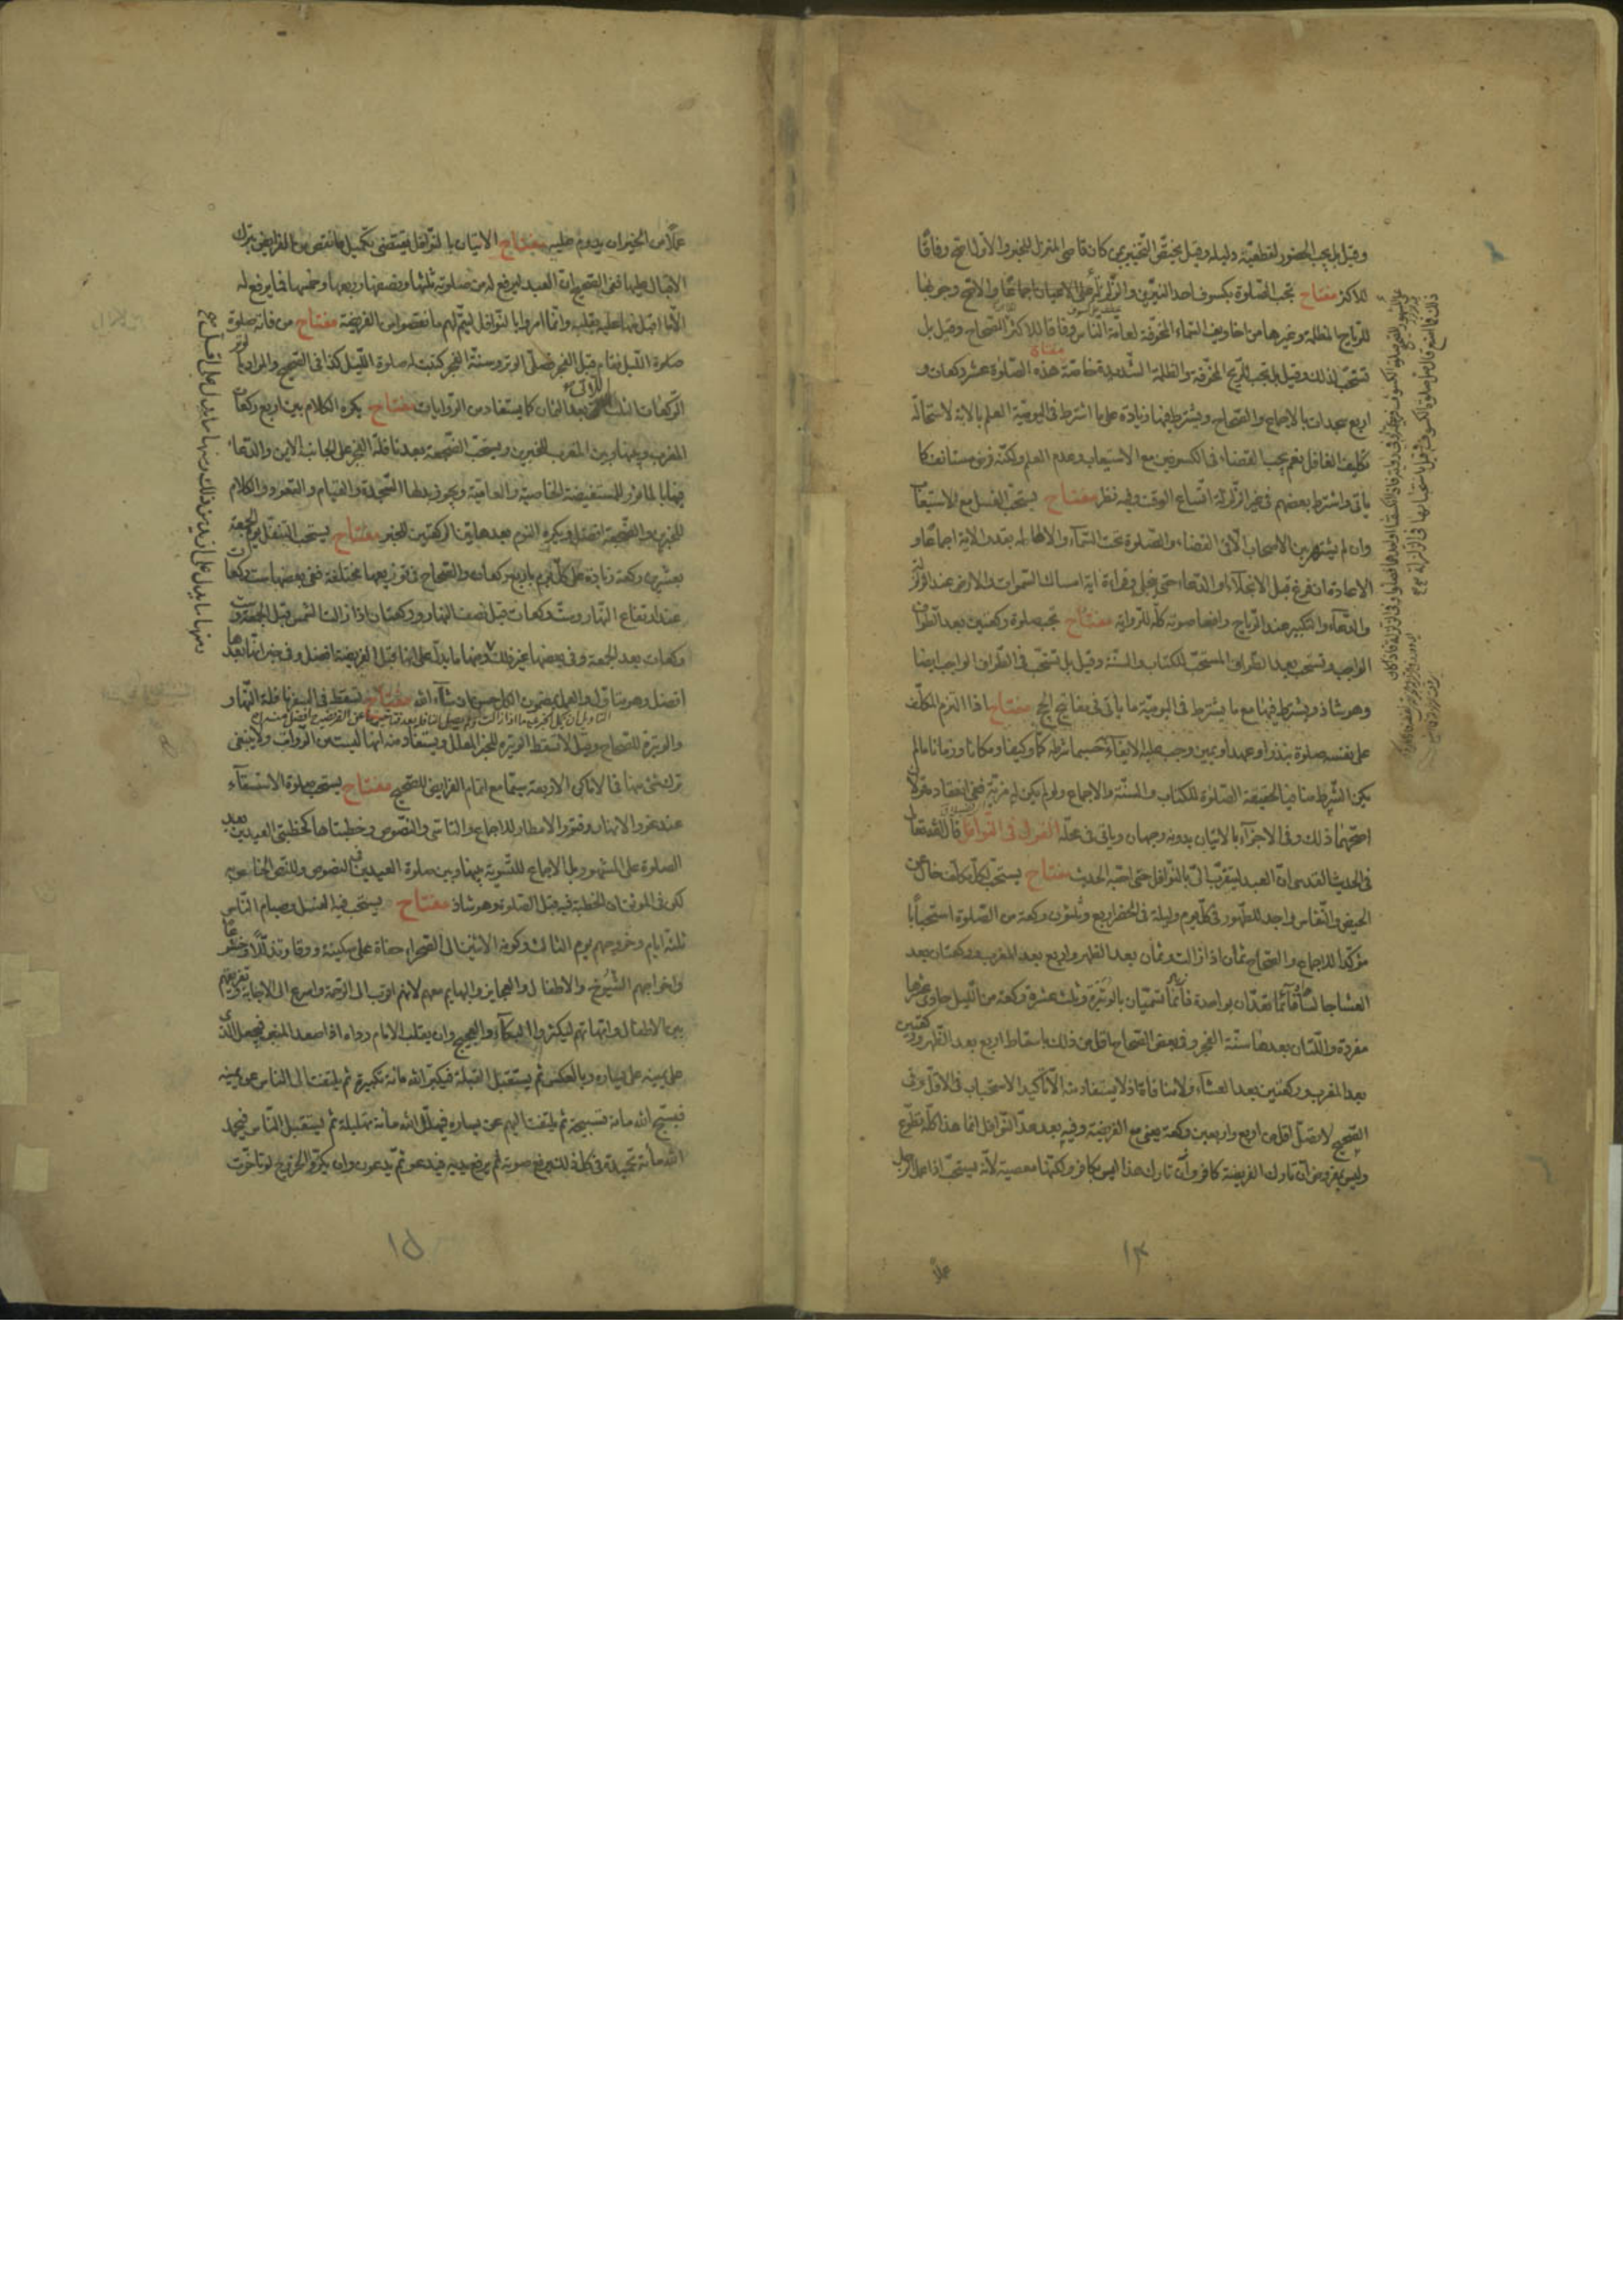 وقيل بل يجب الحضور لقطعيّة دليله وقيل يختصّ التخيير بمن كان قاصى المنزل للخبر والاوّل اصحّ وفاقًا
للاكثر مفتاح تجب الصّلوة بكسوف احد النيّرين والزّلزلة على الاعيان اجماعًا والاصحّ وجوبها
للرّياح المظلمة وغيرها من اخاويف السّماء المخوّفة لعامّة النّاس وفاقا للاكثر للصّحاح وقيل بل
تستحبّ لذلك وقيل بل تجب للرّيح المخوّفة والظلمة الشّديدة خاصّة مفتاح هذه الصّلوة عشر ركعات و
اربع سجدات بالاجماع والصّحاح ويشترط فيها زيادة على ما اشترط فى اليوميّة العلم بالاية لاستحالة
تكليف الغافل نعم يجب القضاء فى الكسوفين مع الاستيعاب وعدم العلم ولكنّه فرض مستانف كما
ياتى واشترط بعضهم فى غير الزّلزلة اتّساع الوقت وفيه نظر مفتاح يستحبّ الغسل مع الاستيعاب
وان لم يشتهر بين الاصحاب لاتى القضاء والصّلوة تحت السّماء والاطالة بقدر الاية اجماعًا و
الاعادة ان فرغ قبل الانجلاء او الدّعاء حتى ينجلى وقراءة اية امساك السّموات والارض عند الزلزلة
والدّعاء والتكبير عند الرّياح رافعا صوته كلّه للرّواية مفتاح تجب صلوة ركعتين بعد الطّواف
الواجب وتستحبّ بعد الطّواف المستحبّ للكتاب والسّنّة وقيل بل تستحبّ فى الطّواف الواجب ايضا
وهو شاذ ويشترط فيها مع ما يشترط فى اليوميّة ما ياتى فى مفاتيح الحج مفتاح اذا التزم المكلّف
على نفسه صلوة بنذر او عهد او يمين وجب عليه الايفاء حسبما شرطه كمّا وكيفا ومكانا وزمانا ما لم
يكن الشّرط منافيا لحقيقة الصّلوة للكتاب والسّنّة والاجماع ولو لم يكن له مزيّة ففى انعقاده قولان
اصحّهما ذلك وفى الاجزاء بالاتيان بدونه وجهان وياتى فى محلّه القول فى النّوافل قال الله تعالى
فى الحديث القدسى انّ العبد ليتقرّب الىّ بالنّوافل حتى احبّه الحديث مفتاح يستحبّ لكلّ مكلّف خال عن
الحيض والنّفاس واجد للطّهور فى كلّ يوم وليلة فى الحضر اربع وثلثون ركعة من الصّلوة استحبابًا
مؤكدا للاجماع والصّحاح ثمان اذا زالت وثمان بعد الظهر واربع بعد المغرب وركعتان بعد
العشا جالسًا او قائما تعدّان بواحدة تسمّيان بالوتيرة وثلث عشرة ركعة من اللّيل
مفردة واللّتان بعدها سنّة الفجر وفى بعض الصّحاح باقل من ذلك باسقاط اربع بعد الظّهر وركعتين
بعد المغرب وركعتين بعد العشاء ولا منافاة اذ لا يستفاد منه الّا تاكيد الاستحباب فى الاقلّ وفى
الصّحيح لا تصلّ اقلّ من اربع واربعين ركعة يعنى مع الفريضة وفيه بعد عدّ النّوافل انما هذا كلّه تطوّع
وليس بمفروض انّ تارك الفريضة كافر وانّ تارك هذا ليس بكافر ولكنّها معصية لانّه يستحبّ اذا عمل الرجل
عملًا
١٤
عملًا من الخير ان يدوم عليه مفتاح الاتيان بالنّوافل يقتضى تكميل ما نقص من الفرايض بترك
الاقبال عليها ففى الصّحيح انّ العبد ليرفع له من صلوته ثلثها ونصفها وربعها وخمسها فما يرفع له
الّا ما اقبل منها عليه بقلبه وانّما امروا بالنّوافل ليتمّ لهم ما نقصوا من الفريضة مفتاح من فاته صلوة
صلوة اللّيل فقام قبل الفجر فصلّى الوتر وسنّة الفجر كتبت له صلوة اللّيل كذا فى الصّحيح والمراد بالوتر
الرّكعات الثلث بعد الثمان كما يستفاد من الرّوايات مفتاح يكره الكلام بين اربع ركعات
المغرب وبينها وبين المغرب للخبرين ويستحبّ الضّجعة بعد نافلة الفجر على الجانب الايمن والدّعاء
فيها بالماثور للمستفيضة الخاصيّة والعاميّة ويجزى بدلها السّجدة والقيام والقعود والكلام
للخبرين والضّجعة افضل ويكره النّوم بعد هاتين الركعتين للخبر مفتاح يستحبّ التنفّل يوم الجمعة
بعشرين ركعة زيادة على كلّ يوم باربع ركعات والصّحاح فى توزيعها مختلفة ففى بعضها ست ركعات
عند ارتفاع النّهار وستّ ركعات قبل نصف النّهار وركعتان اذا زالت الشّمس قبل الجمعة وستّ
ركعات بعد الجمعة وفى بعضها غير ذلك ومنها ما يدلّ على انها قبل الفريضة افضل وفى خبر انها بعدها
افضل وهو متاوّل والعمل بمضمون الكلّ حسن ان شاء الله مفتاح تسقط فى السّفر نافلة النّهار و
والوتيرة للصّحاح وقيل لا تسقط الوتيرة للخبر المعلل ويستفاد منه انها ليست من الرّواتب ولا ينبغى
ترك شئ منها فى الاماكن الاربعة سيّما مع اتمام الفرايض للصّحيح مفتاح يستحبّ صلوة الاستسقاء
عند غور الانهار وفتور الامطار للاجماع والتاسّى والنّصوص وخطبتاها كخطبتى العيدين بعد
الصلوة على المشهور بل الاجماع للتّسوية بينها وبين صلوة العيدين فى النصوص وللنّص الخاص به
لكن فى الموثّق ان الخطبة فيه قبل الصّلوة وهو شاذ مفتاح يستحبّ فيه الغسل وصيام النّاس
ثلثة ايام وخروجهم يوم الثالث وكونه الاثنين الى الصّحراء حفاة على سكينة ووقار وتذلّلا وخشوعا
واخراجهم الشّيوخ والاطفال والعجايز والبهايم معهم لانهم اقرب الى الرّحمة واسرع الى الاجابة وتفريقهم
بين الاطفال وامّهاتهم ليكثر البكاء والعجيج وان يقلب الامام رداءه اذا صعد المنبر فيجعل الّذى
على يمينه على يساره وبالعكس ثم يستقبل القبلة فيكبّر الله مائة تكبيرة ثم يلتفت الى الناس عن يمينه
فيسبّح الله مائة تسبيحة ثم يلتفت اليهم عن يساره فيهلّل الله مائة تهليلة ثم يستقبل النّاس فيحمد
الله مائة تحميدة فى كلّ ذلك يرفع صوته ثم يرفع يديه فيدعو ثمّ يدعون وان يكرّروا الخروج لو تاخّرت
١٥